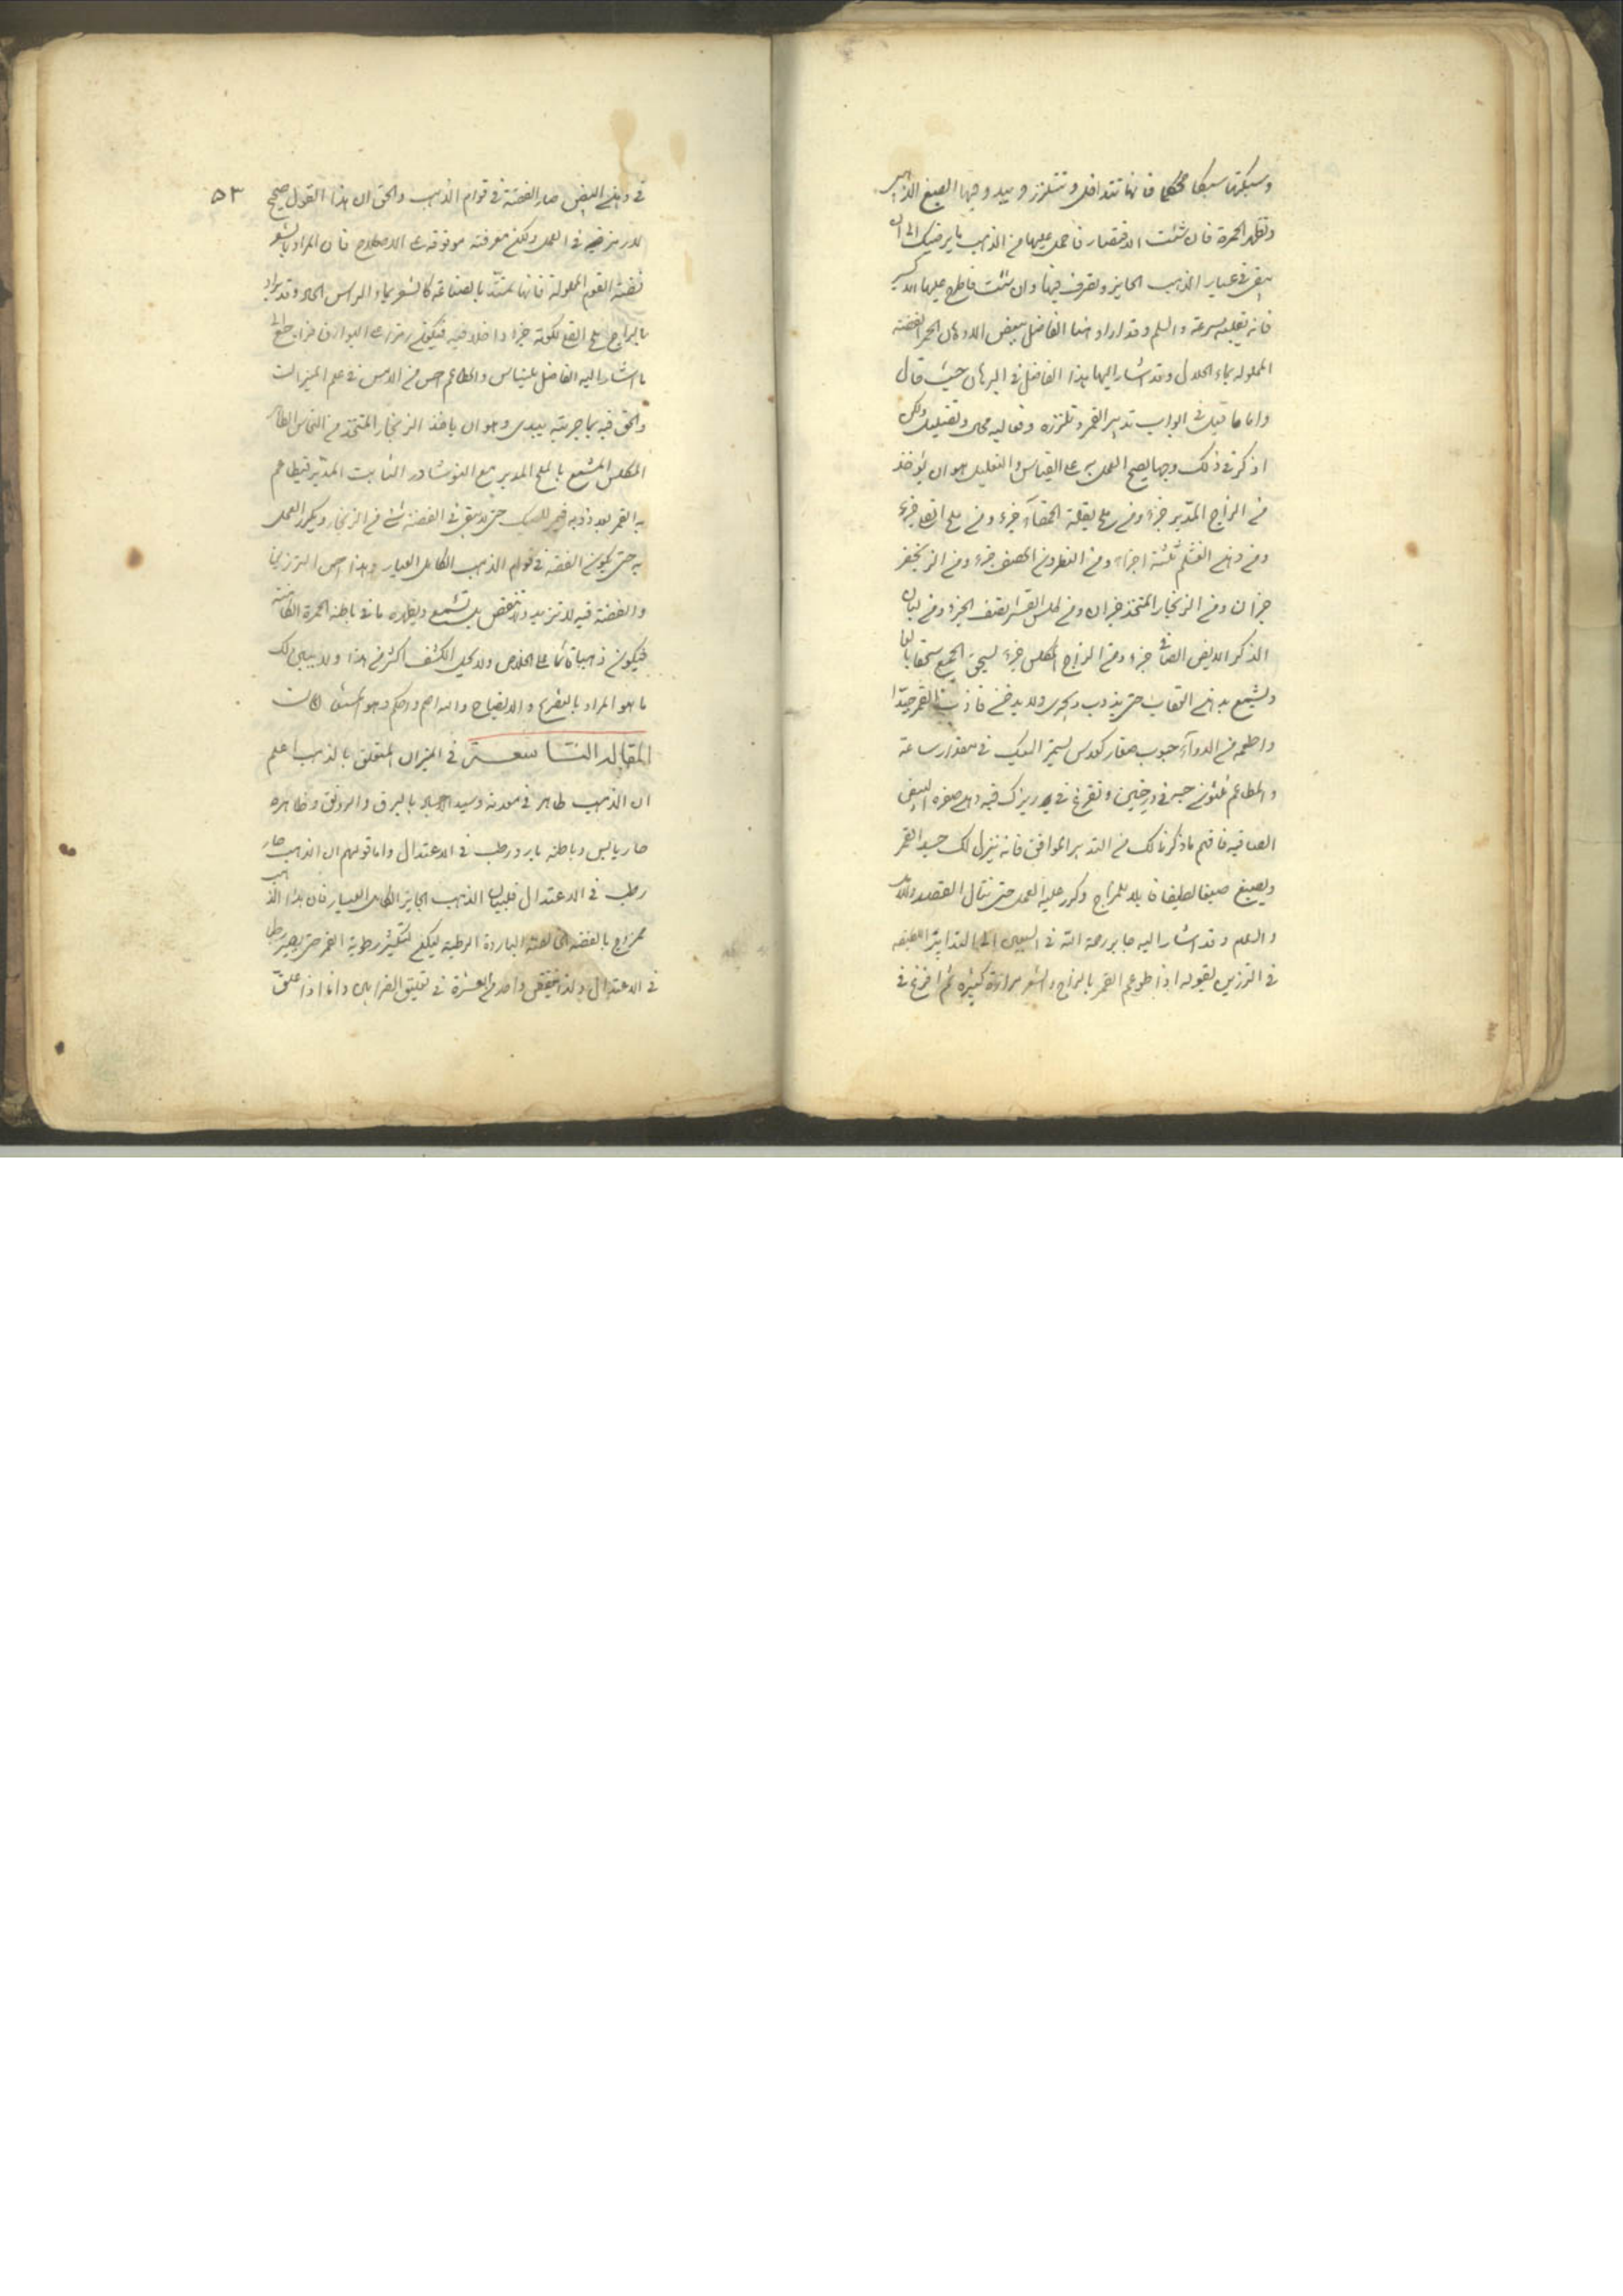 وسبكتها سبكا محكما فانها تتداخل وتتلزز ويبدو فيها الصبغ الذهبي
وتظهر الحمرة فان شئت الاختصار فاحمل عليها من الذهب ما يرضيك الى ان
يبقى في عيار الذهب الجايز وتصرف فيها وان شئت فاطرح عليها الاكسير
فانه يقلبه بسرعة والسلم وقد اراد هنا الفاضل ببعض الادهان الحمر الفضة
المحلولة بماء الحلال وقد اشار اليها هذا الفاضل في البرهان حيث قال
واما ما قيل في ابواب تدبير القمر وتلززه ومحال ولكن
اذكر في ذلك وجها يصح العمل به على القياس والتعليل وهو ان يؤخذ
من الزاج المدبر جزء ومن ملح بقلة الحمقاء جزء ومن ملح القلي جزء
ومن دهن ثلثة اجزاء ومن النطرون المصفى جزء ومن الزنجفر
جزان ومن الزنجار المتخذ جزان ومن كلس القشر نصف الجزء ومن لبان
الذكر الابيض الصافي جزء ومن الزاج المكلس جزء يسحق الجميع سحقا بالغا
ويشمع بدهن العقاب حتى يذوب ويجرى ولا يدخن فاذب القمر جيدا
واطعمه من الدواء حبوب صغار كعدس يستمر السبك في مقدار ساعة
والمطاعم ثلثون حبة في درجتين وتفرغ في ريزك فيه دهن صفرة البيض
الصافية فافهم ما ذكرنا لك من التدبير الموافق فانه ينزل لك جسد القمر
ويصبغ صبغا لطيفا قابلا للمزاج وكرر عليه العمل حتى تنال القصد ولله
والعلم وقد اشار اليه جابر رحمة الله في السبعين الى التدابير اللطيفة
في الترزين بقوله اذا طوعم القمر بالزاج والشعر مرارا كثيرة ثم افرغ في
٥٣
في دهن البيض صار الفضة في قوام الذهب والحق ان هذا القول صحيح
لا رمز فيه في العمل ولكن معرفته موقوفة على الاصطلاح فان المراد بالشعر
فضة القوم المحلولة فانها تمتد بالصناعة كالشعر بماء الراس الحاد وقد يراد
بالزاج ملح القلي لكونه جزء داخلا فيه فيكون رمزا على البوارق
ما اشار اليه الفاضل بلنياس والمطاعم احسن من الامس في علم الميزان
والحق فيه بما جربته بيدى وهو ان ياخذ الزنجار المتخذ من النحاس الطاهر
المكلس المشمع بالملح المدبر مع النوشادر الثابت المدبر فيطاعم
به القمر بعد ذوبه في السبك حتى لا يبقى في الفضة شئ من الزنجار ويكرر العمل
به حتى يكون الفضة في قوام الذهب الكامل العيار وهذا احسن الترزين
والفضة فيه لا تزيد ولا تنقص بل تشمع ويظهر ما في باطنه الحمرة الكامنة
فيكون ذهبا قائما على الخلاص ولا يحل الكشف اكثر من هذا وليبين لك
ما هو المراد بالتصريح والايضاح والله اعلم واحكم وهو
المقالة التاسعة في الميزان المتعلق بالذهب اعلم
ان الذهب طاهر في معدنه وسيد الاجساد بالبرق والرونق وظاهره
حار يابس وباطنه بارد رطب في الاعتدال واما قولهم ان الذهب حار
رطب في الاعتدال فلبيان الذهب الجايز الكامل العيار فان هذا الذهب
ممزاج بالفضة الخالصة الباردة الرطبة ليكن لتكثير رطوبة القمر حتى يصير رطبا
في الاعتدال ولا ينقص واحد من العشرة في تعليق الخلاص واما اذا علق